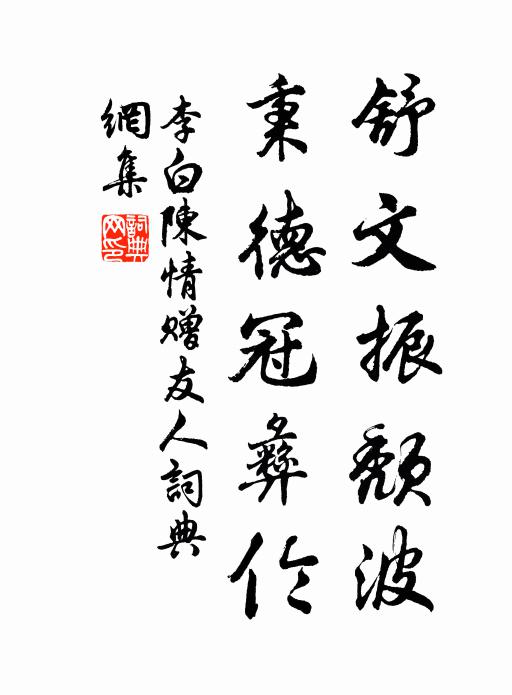 舒文振頹波
秉德冠彝伦
李白陳情贈友人詞典
網集
詞典
网印